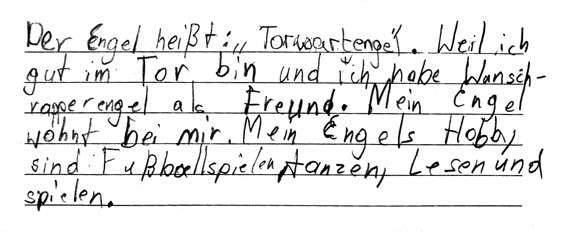 Der Engel heißt: „Torwartengel". Weil ich
gut im Tor bin und ich habe Wunsch-
rapperengel als Freund. Mein Engel
wohnt bei mir. Mein Engels Hobby
sind: Fußballspielen, tanzen, Lesen und
spielen.